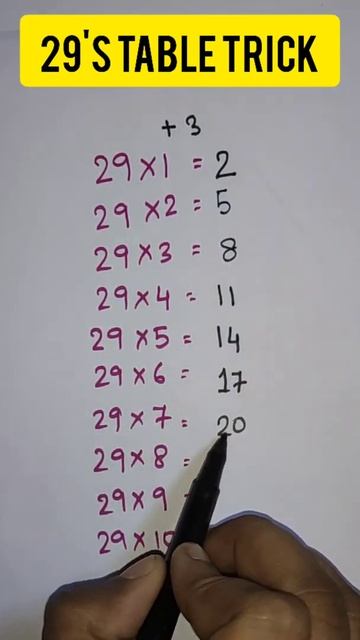 29'S TABLE TRICK
+ 3
29 × 1 = 2
29 × 2 = 5
29 × 3 = 8
29 × 4 = 11
29 × 5 = 14
29 × 6 = 17
29 × 7 = 20
29 × 8 =
29 × 9
29 × 10